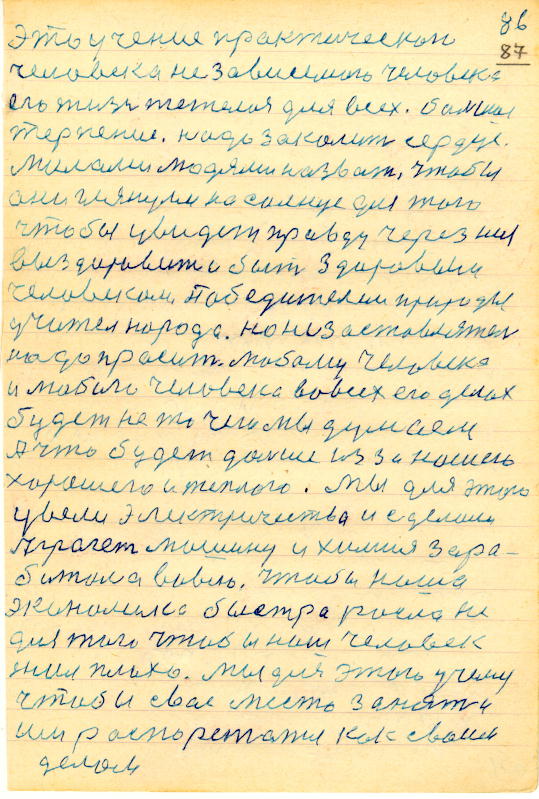 86
87
Это учение практическом
человека независемого человека
его жизн тежолоя для всех.
терпение. надо заколит сердце.
Милами людями назват, чтобы
они глянули на солнце для того
чтобы увидет правду через ния
выздоровит и быт здоровым
человеком Победителем природы
учител народа. но не заставлятел
надо просит. любому человека
и любого человека вовсех его делах
будет не то чего мы думаем
А что будет дальше из за нашего
хорошего и теплого. Мы для этого
увели электричества и сделали
Аграгет машину и химия зара-
ботала вовсю. чтобы наша
экономика быстра росла не
для того чтобы наш человек
жил плохо. Мы для этого учому
чтобы свае место занят и
им роспорежатся как своим
делом